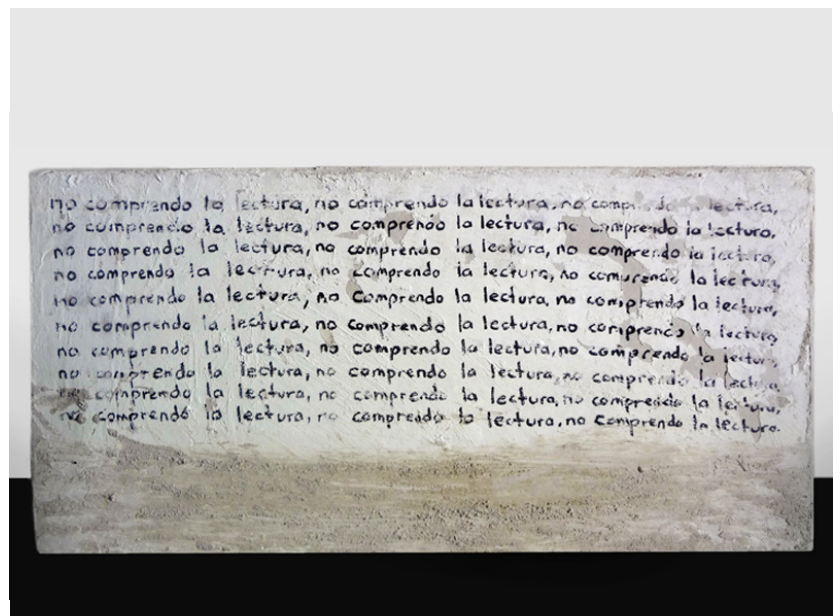 no comprendo la lectura, no comprendo la lectura, no comprendo la lectura,
no comprendo la lectura, no comprendo la lectura, no comprendo la lectura,
no comprendo la lectura, no comprendo la lectura, no comprendo la lectura,
no comprendo la lectura, no comprendo la lectura, no comprendo la lectura,
no comprendo la lectura, no comprendo la lectura, no comprendo la lectura,
no comprendo la lectura, no comprendo la lectura, no comprendo la lectura,
no comprendo la lectura, no comprendo la lectura, no comprendo la lectura,
no comprendo la lectura, no comprendo la lectura, no comprendo la lectura,
no comprendo la lectura, no comprendo la lectura, no comprendo la lectura,
no comprendo la lectura, no comprendo la lectura, no comprendo la lectura.